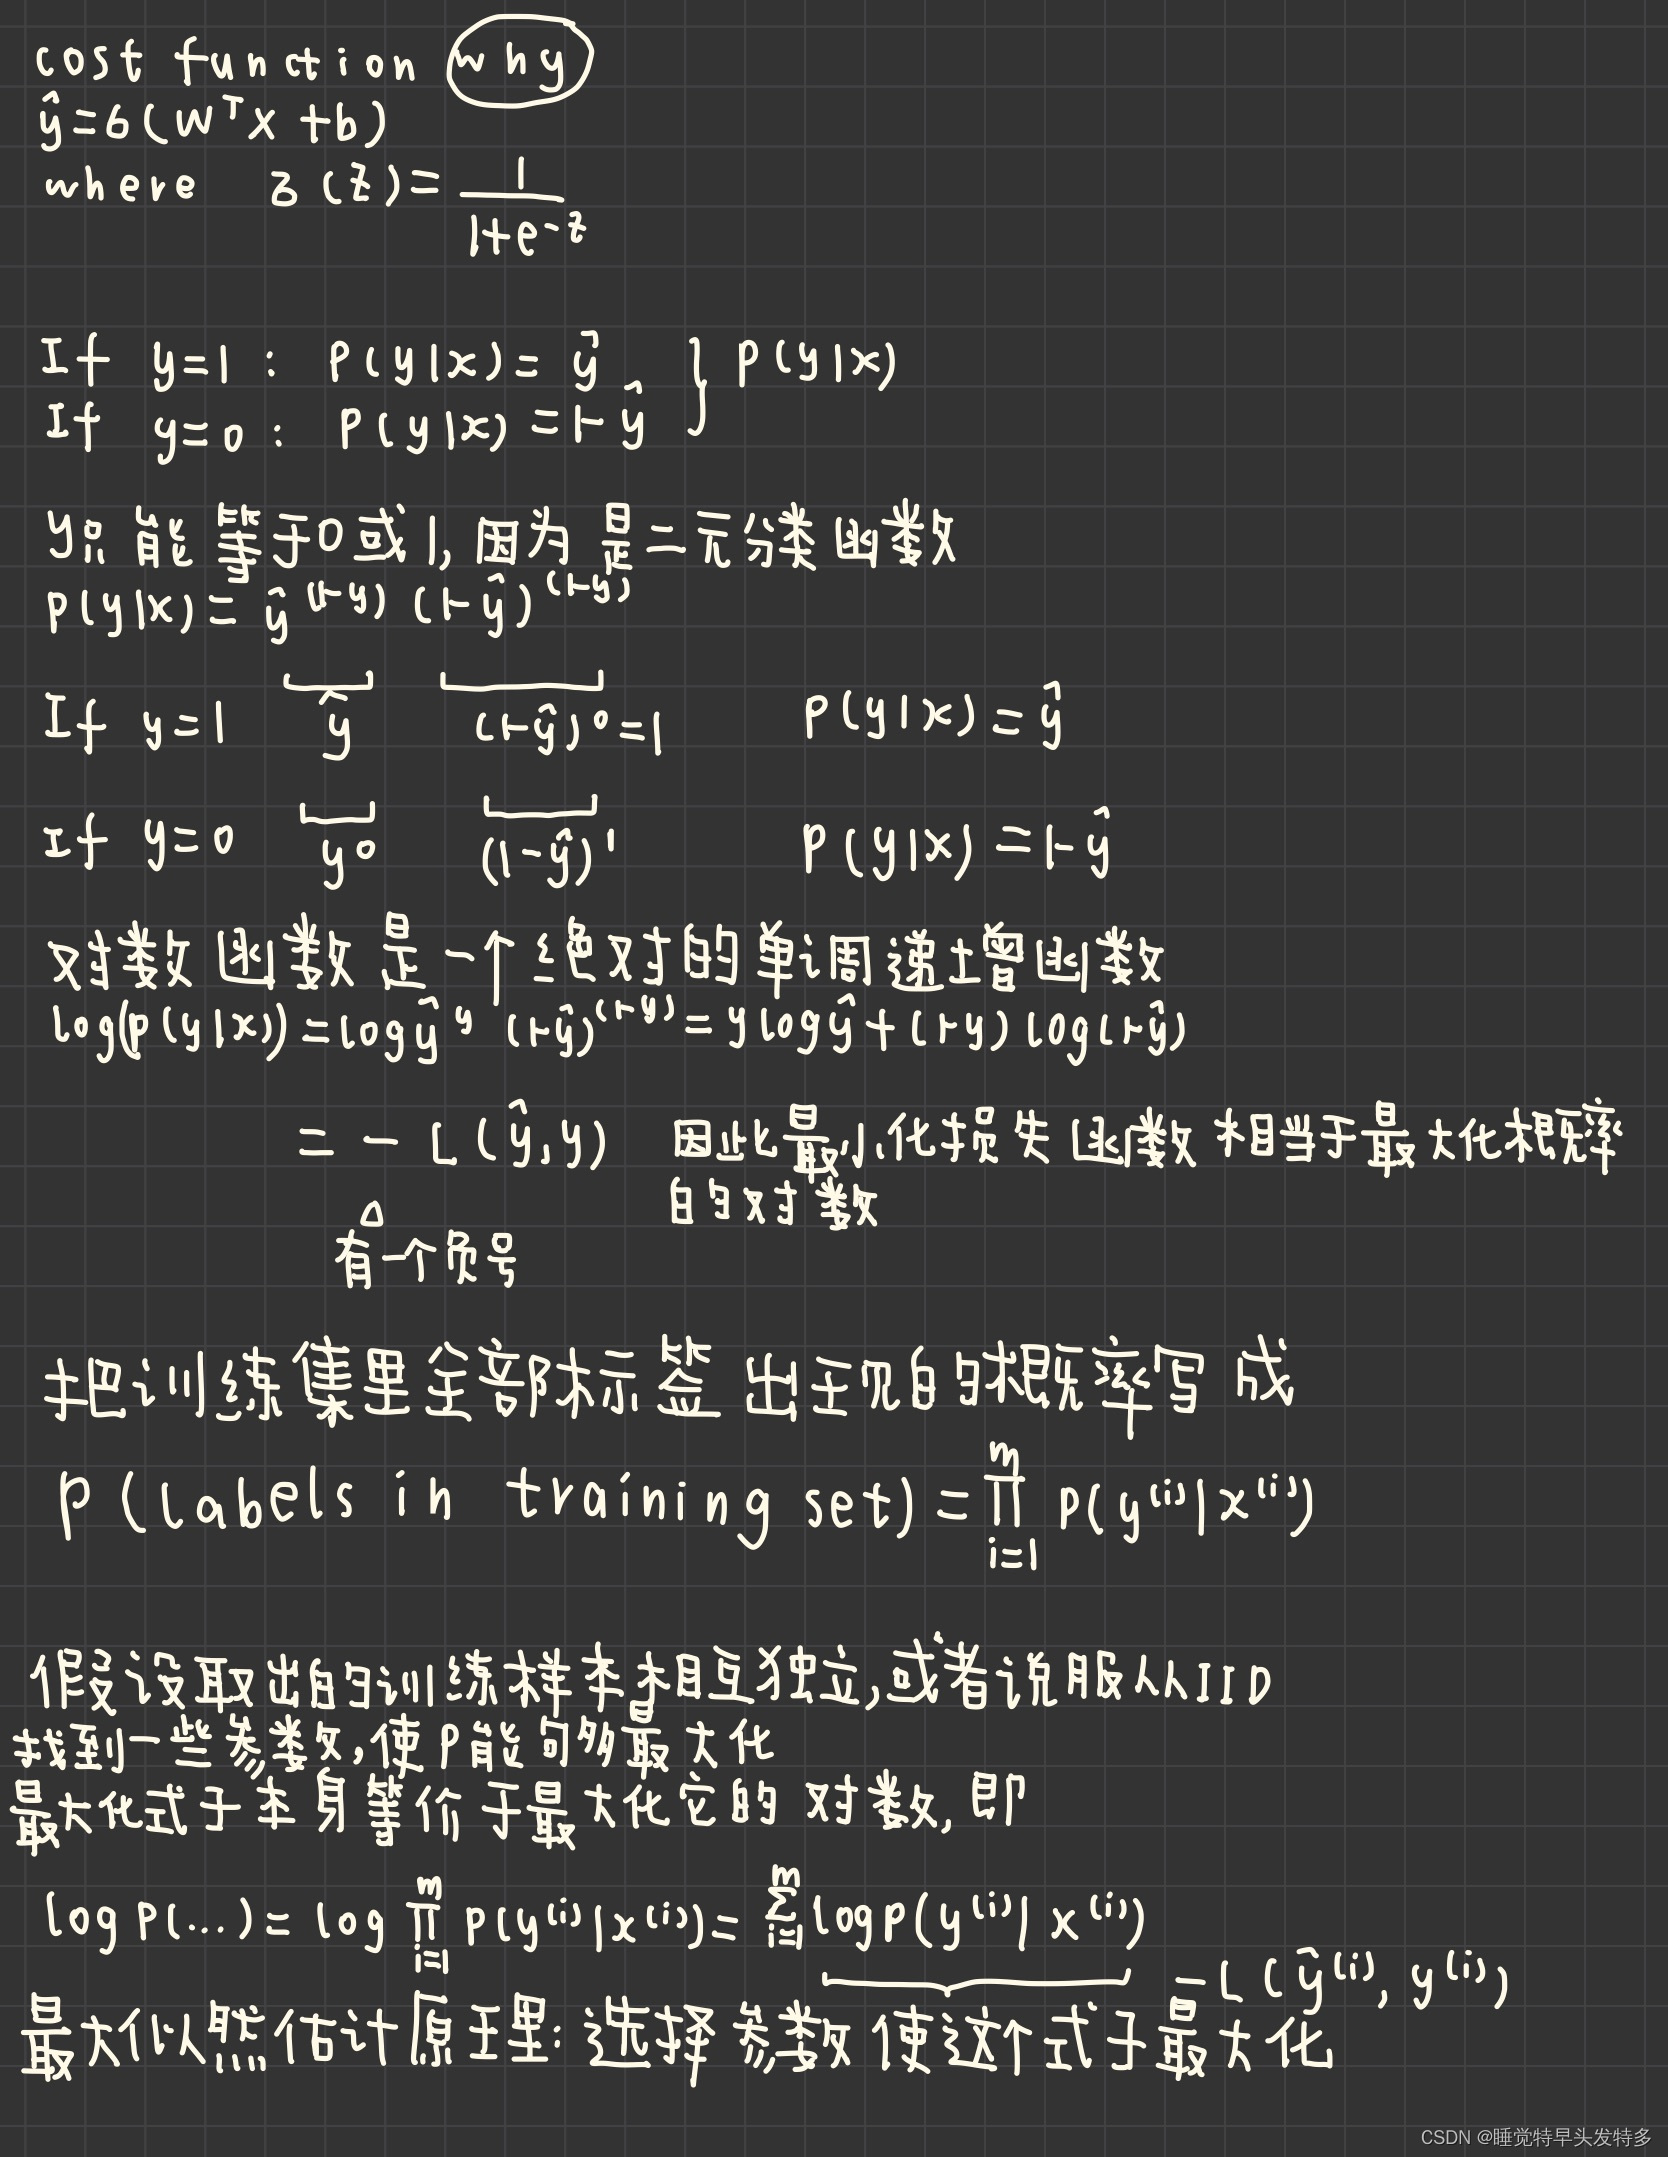 cost function why
ŷ=6(WᵀX+b)
where 6(z)=1/(1+e^-z)
If y=1: P(y|x)=ŷ } P(y|x)
If y=0: P(y|x)=1-ŷ
y只能等于0或1,因为是二元分类函数
P(y|x)=ŷ^(1-y) (1-ŷ)^(1-y)
If y=1 ŷ (1-ŷ)⁰=1 P(y|x)=ŷ
If y=0 y⁰ (1-ŷ)¹ P(y|x)=1-ŷ
对数函数是一个绝对的单调递增函数
log(p(y|x))=logŷ^y (1-ŷ)^(1-y)=ylogŷ+(1-y)log(1-ŷ)
=-L(ŷ,y) 因此最小化损失函数相当于最大化概率
的对数
△
有一个负号
把训练集里全部标签出现的概率写成
P(labels in training set)=∏_{i=1}^{m} P(y^(i)|x^(i))
假设取出的训练样本相互独立,或者说服从IID
找到一些参数,使P能句多最大化
最大化式子本身等价于最大化它的对数,即
log P(...)=log ∏_{i=1}^{m} P(y^(i)|x^(i))=∑_{i=1}^{m} log P(y^(i)|x^(i))
-L(ŷ^(i),y^(i))
最大似然估计原理:选择参数使这个式子最大化
CSDN @睡觉特早头发特多